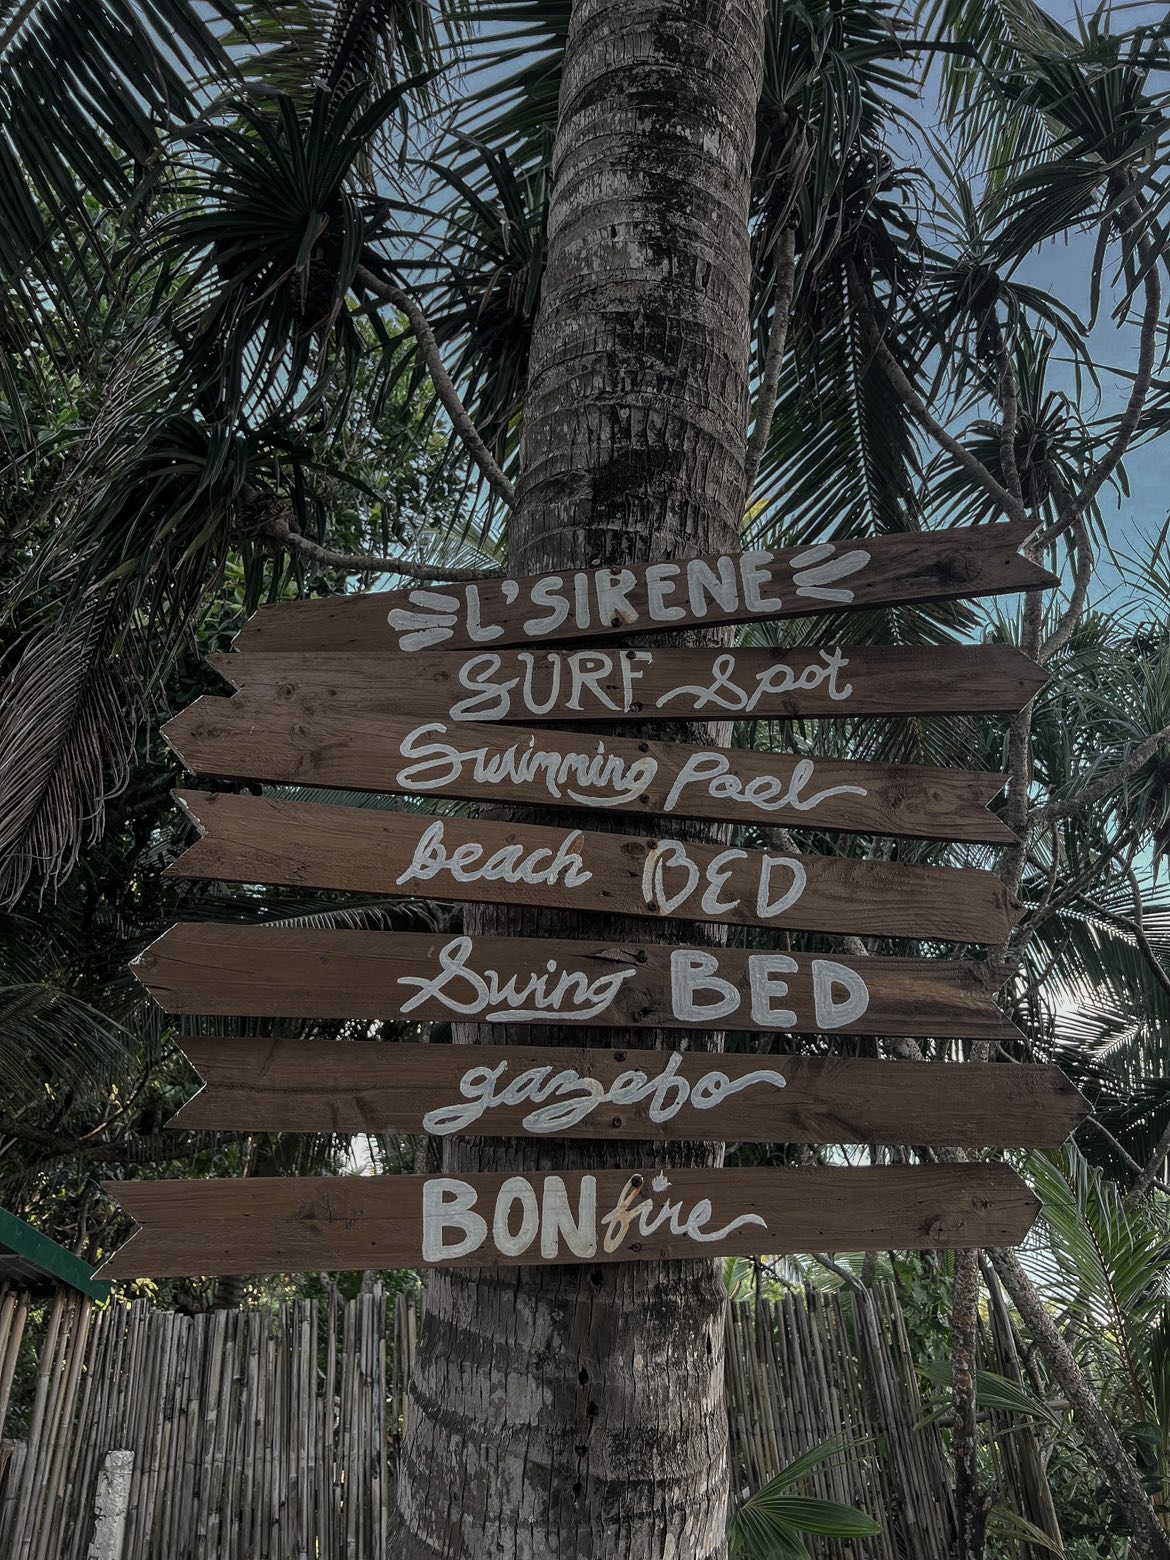 L'SIRENE
SURF Spot
Swimming Pool
beach BED
Swing BED
gazebo
BONfire